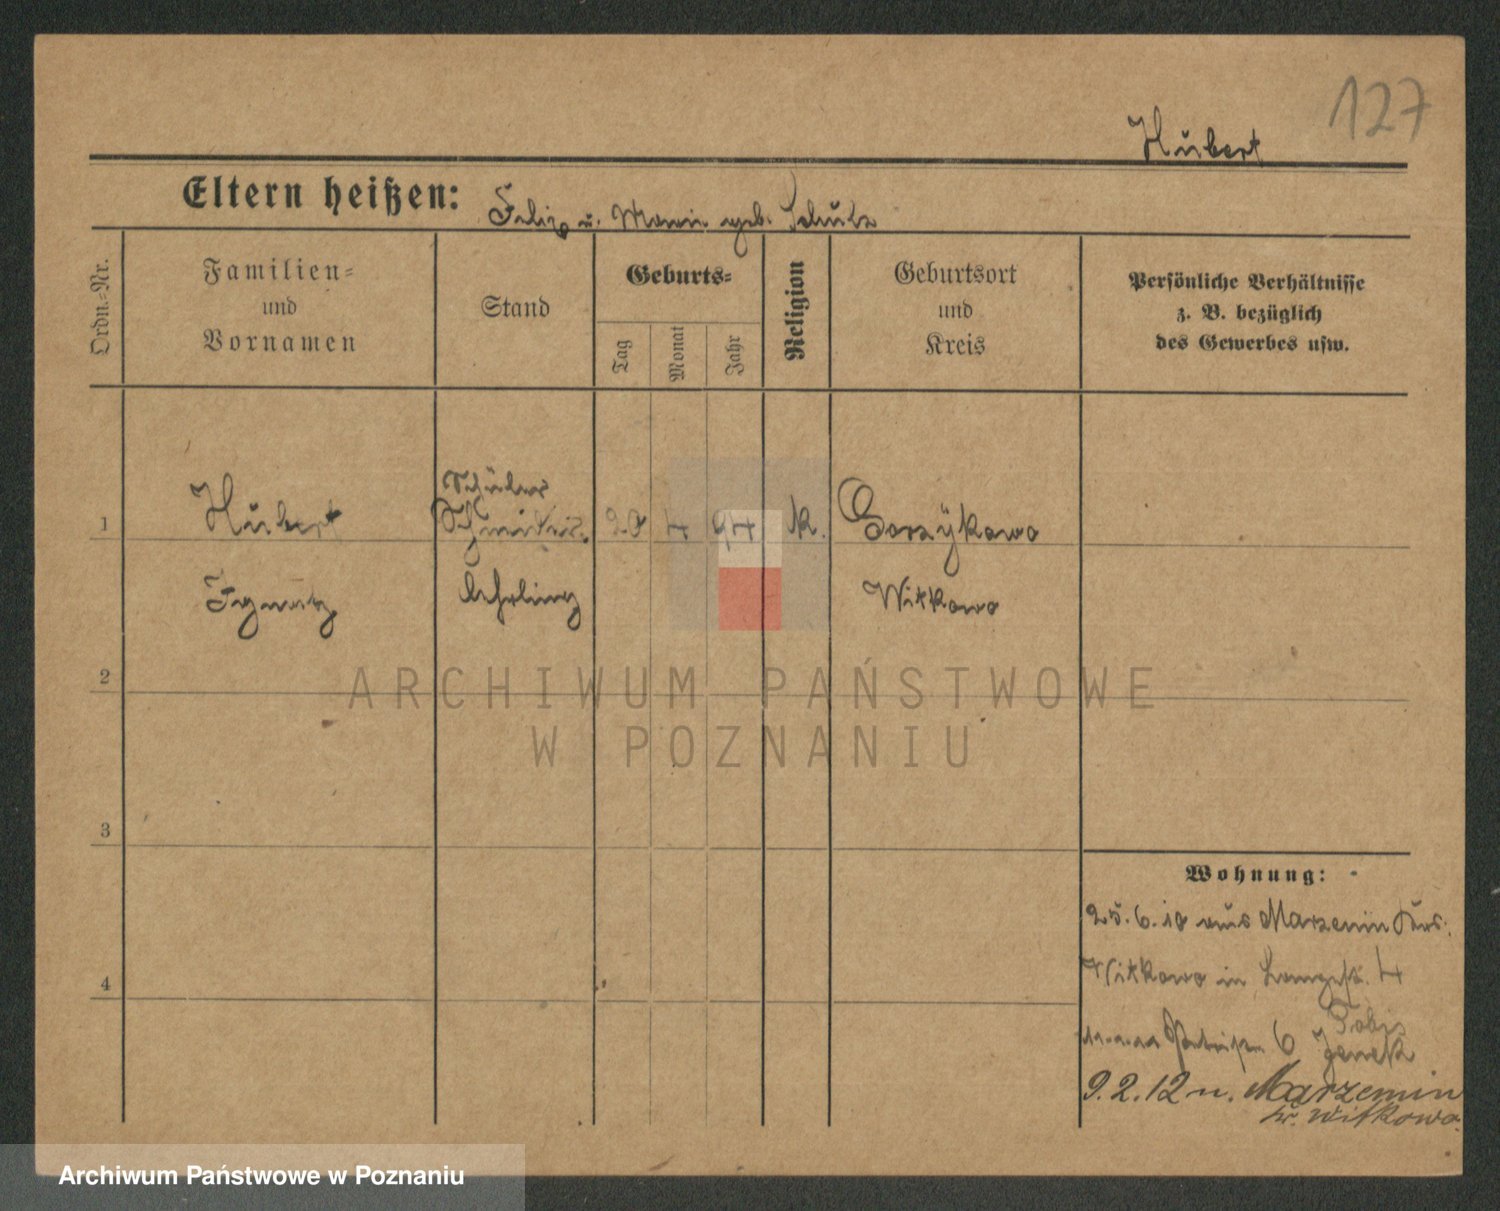 127
Hubert
Eltern heißen: Felix u. Marie geb. Schulz
Ordn.-Nr.
Familien-
und
Vornamen
Stand
Geburts-
Tag
Monat
Jahr
Religion
Geburtsort
und
Kreis
Persönliche Verhältnisse
z. B. bezüglich
des Gewerbes usw.
Schüler
1 Hubert 4 97 k. Gorzykowo
Ignatz lehrling Witkowo
2
ARCHIWUM PAŃSTWOWE
W POZNANIU
3
Wohnung:
25.6.10 aus Marzenin Krs.
4
Witkowo in Langestr. 4
6
9.2.12 n. Marzenin
Kr. Witkowo.
Archiwum Państwowe w Poznaniu